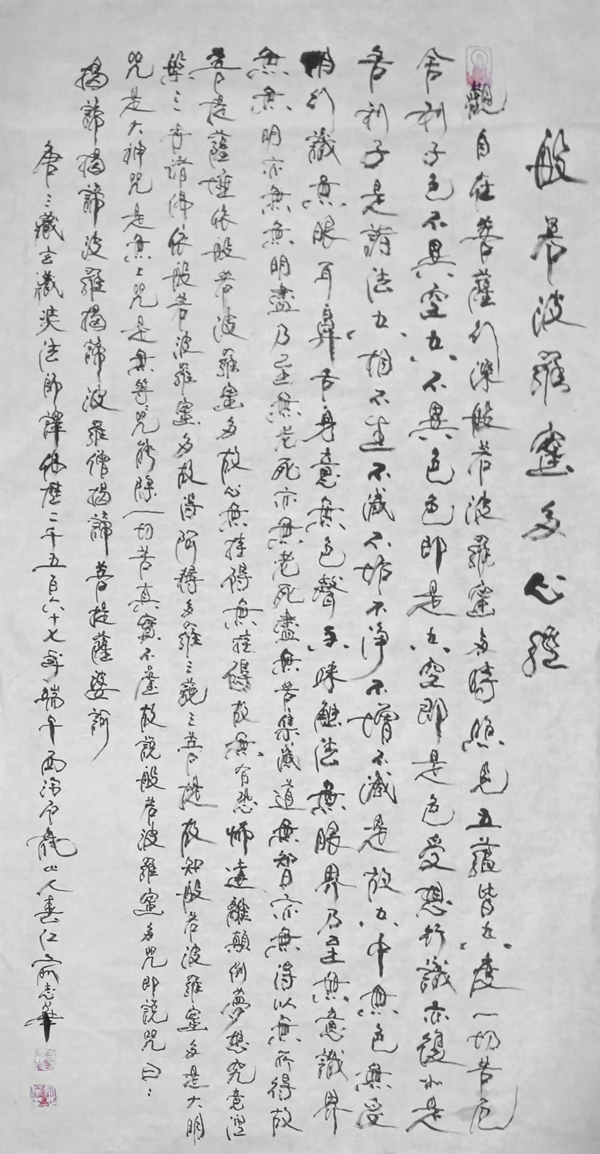 般若波羅蜜多心經
觀自在菩薩行深般若波羅蜜多時照見五蘊皆空度一切苦厄
舍利子色不異空空不異色色即是空空即是色受想行識亦復如是
舍利子是諸法空相不生不滅不垢不淨不增不減是故空中無色無受
想行識無眼耳鼻舌身意無色聲香味觸法無眼界乃至無意識界
無無明亦無無明盡乃至無老死亦無老死盡無苦集滅道無智亦無得以無所得故
菩提薩埵依般若波羅蜜多故心無挂碍無挂碍故無有恐怖遠離顛倒夢想究竟涅
槃三世諸佛依般若波羅蜜多故得阿耨多羅三藐三菩提故知般若波羅蜜多是大明
咒是大神咒是無上咒是無等咒能除一切苦真實不虛故說般若波羅蜜多咒即說咒曰
揭諦揭諦波羅揭諦波羅僧揭諦菩提薩婆訶
唐三藏玄藏奘法師譯佛歷二千五百六十七年端午西山人春江志華